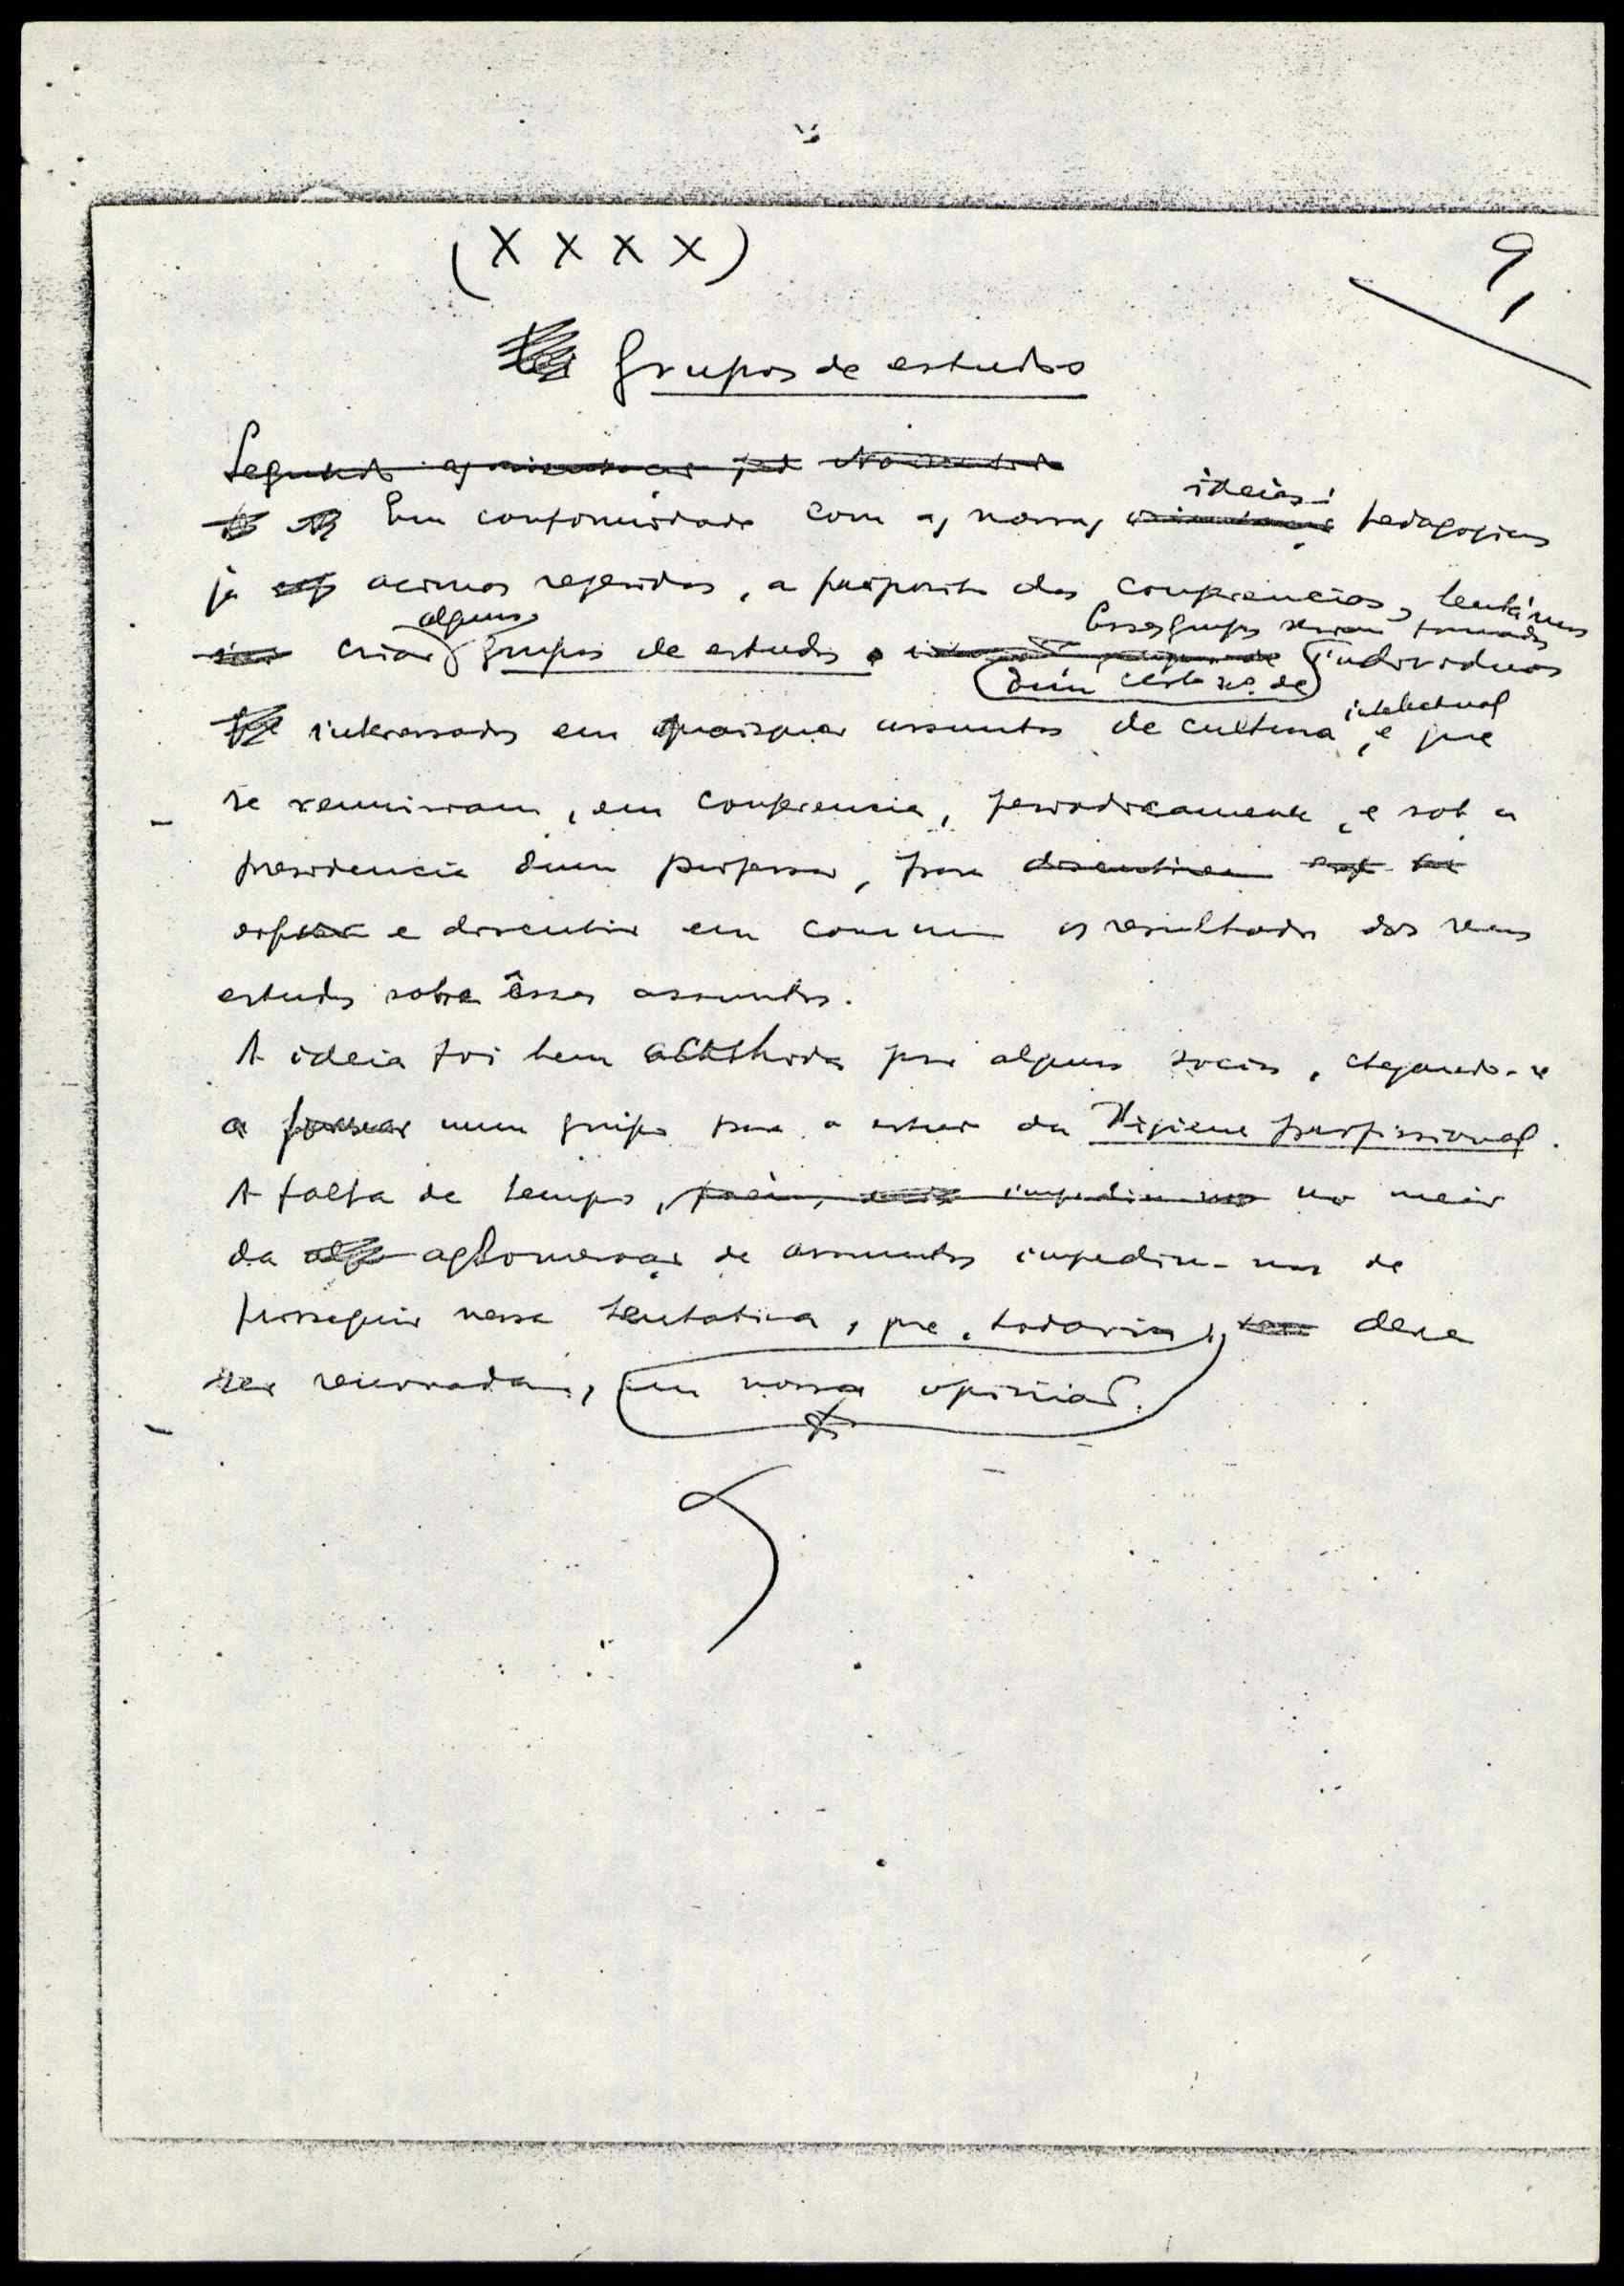 (X X X X)
9,
Grupos de estudos
Segundo as
ideias
Em conformidade com as nossas pedagogicas
já acima referidas, a proposito das conferencias, tentámos
alguns
Esses grupos seriam formados
criar grupos de estudos individuos
dum certo nº. de
interessados em quaisquer assuntos de cultura intelectual, e que
se reunissem, em conferencia, periodicamente, e sob a
presidencia dum professor, para discutirem
e discutir em comum os resultados dos seus
estudos sobre êsses assuntos.
A ideia foi bem acolhida por alguns socios, chegando-se
a formar um grupo para o estudo da Higiene profissional.
A falta de tempo, porém, impediu-nos no meio
da aglomeração de assuntos impediu-nos de
prosseguir nessa tentativa, que, todavia, deve
ser renovada, em nossa opinião.